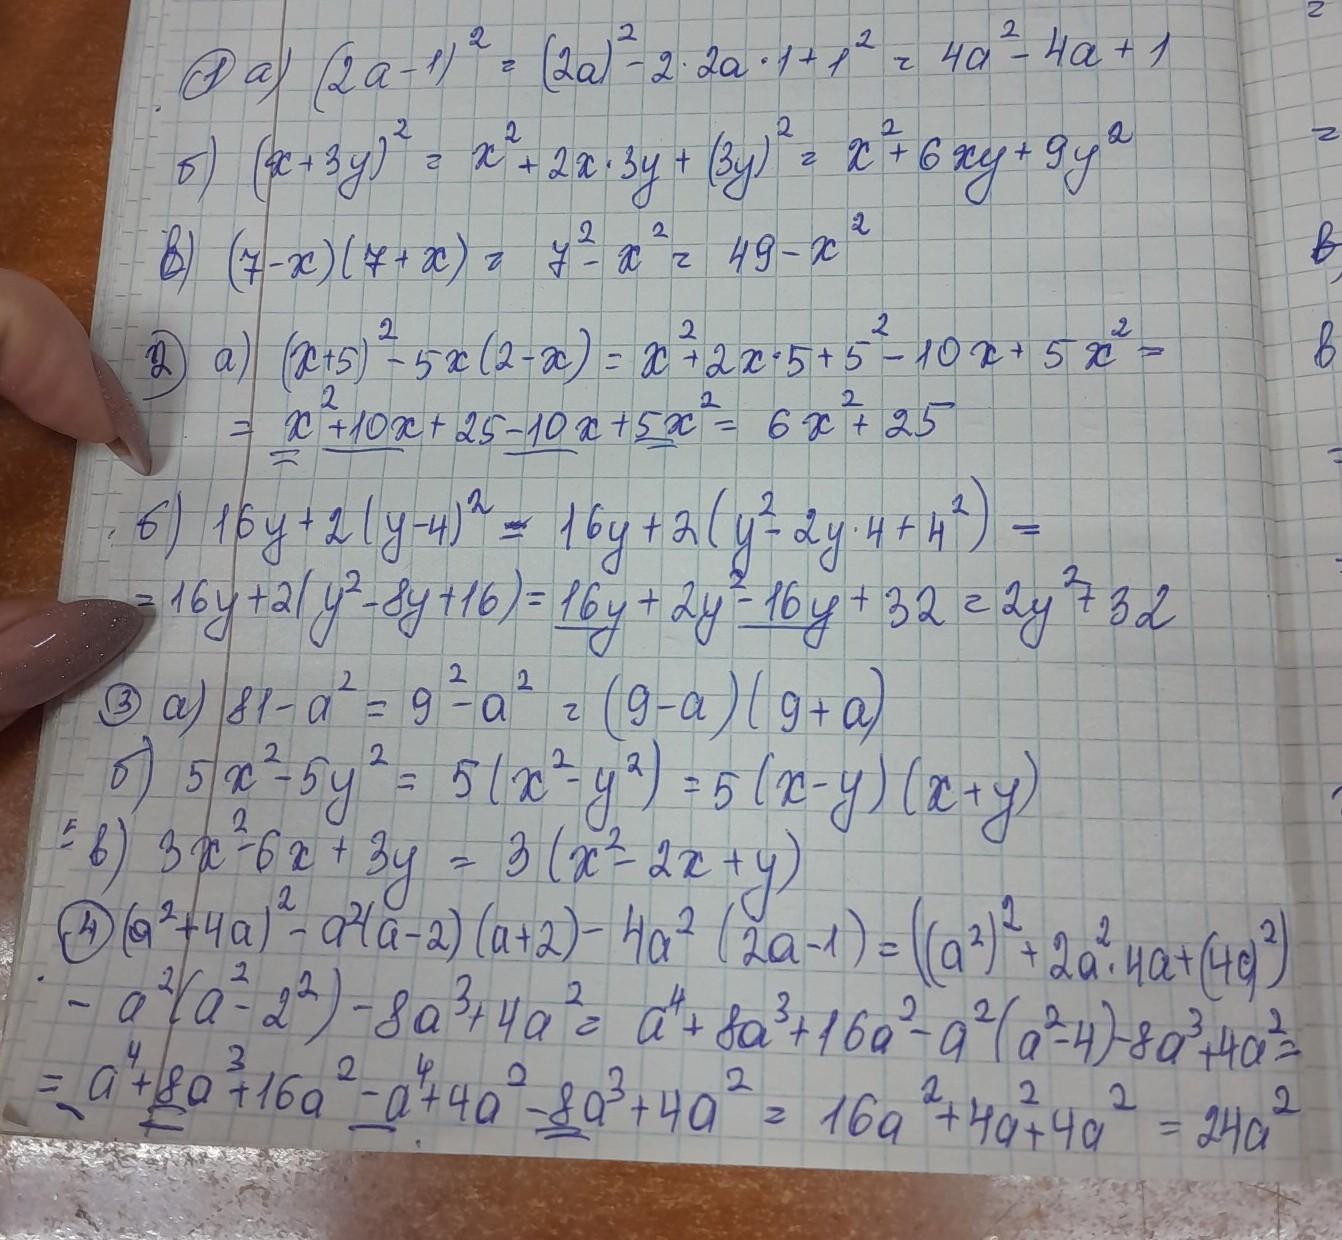 1 а) (2a-1)² = (2a)² - 2·2a·1+1² = 4a² - 4a + 1
б) (x+3y)² = x² + 2x·3y + (3y)² = x² + 6xy + 9y²
в) (7-x)(7+x) = 7² - x² = 49 - x²
2 а) (x+5)² - 5x(2-x) = x² + 2x·5 + 5² - 10x + 5x² =
= x² + 10x + 25 - 10x + 5x² = 6x² + 25
б) 16y + 2(y-4)² = 16y + 2(y² - 2y·4 + 4²) =
= 16y + 2(y² - 8y + 16) = 16y + 2y² - 16y + 32 = 2y² + 32
3 а) 81 - a² = 9² - a² = (9-a)(9+a)
б) 5x² - 5y² = 5(x² - y²) = 5(x-y)(x+y)
в) 3x² - 6x + 3y = 3(x² - 2x + y)
4 (a²+4a)² - a²(a-2)(a+2) - 4a²(2a-1) = ((a²)² + 2a²·4a + (4a)²)
- a²(a² - 2²) - 8a³ + 4a² = a⁴ + 8a³ + 16a² - a²(a² - 4) - 8a³ + 4a² =
= a⁴ + 8a³ + 16a² - a⁴ + 4a² - 8a³ + 4a² = 16a² + 4a² + 4a² = 24a²